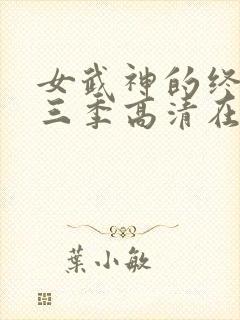 女武神的终
三季高清在
葉小敏